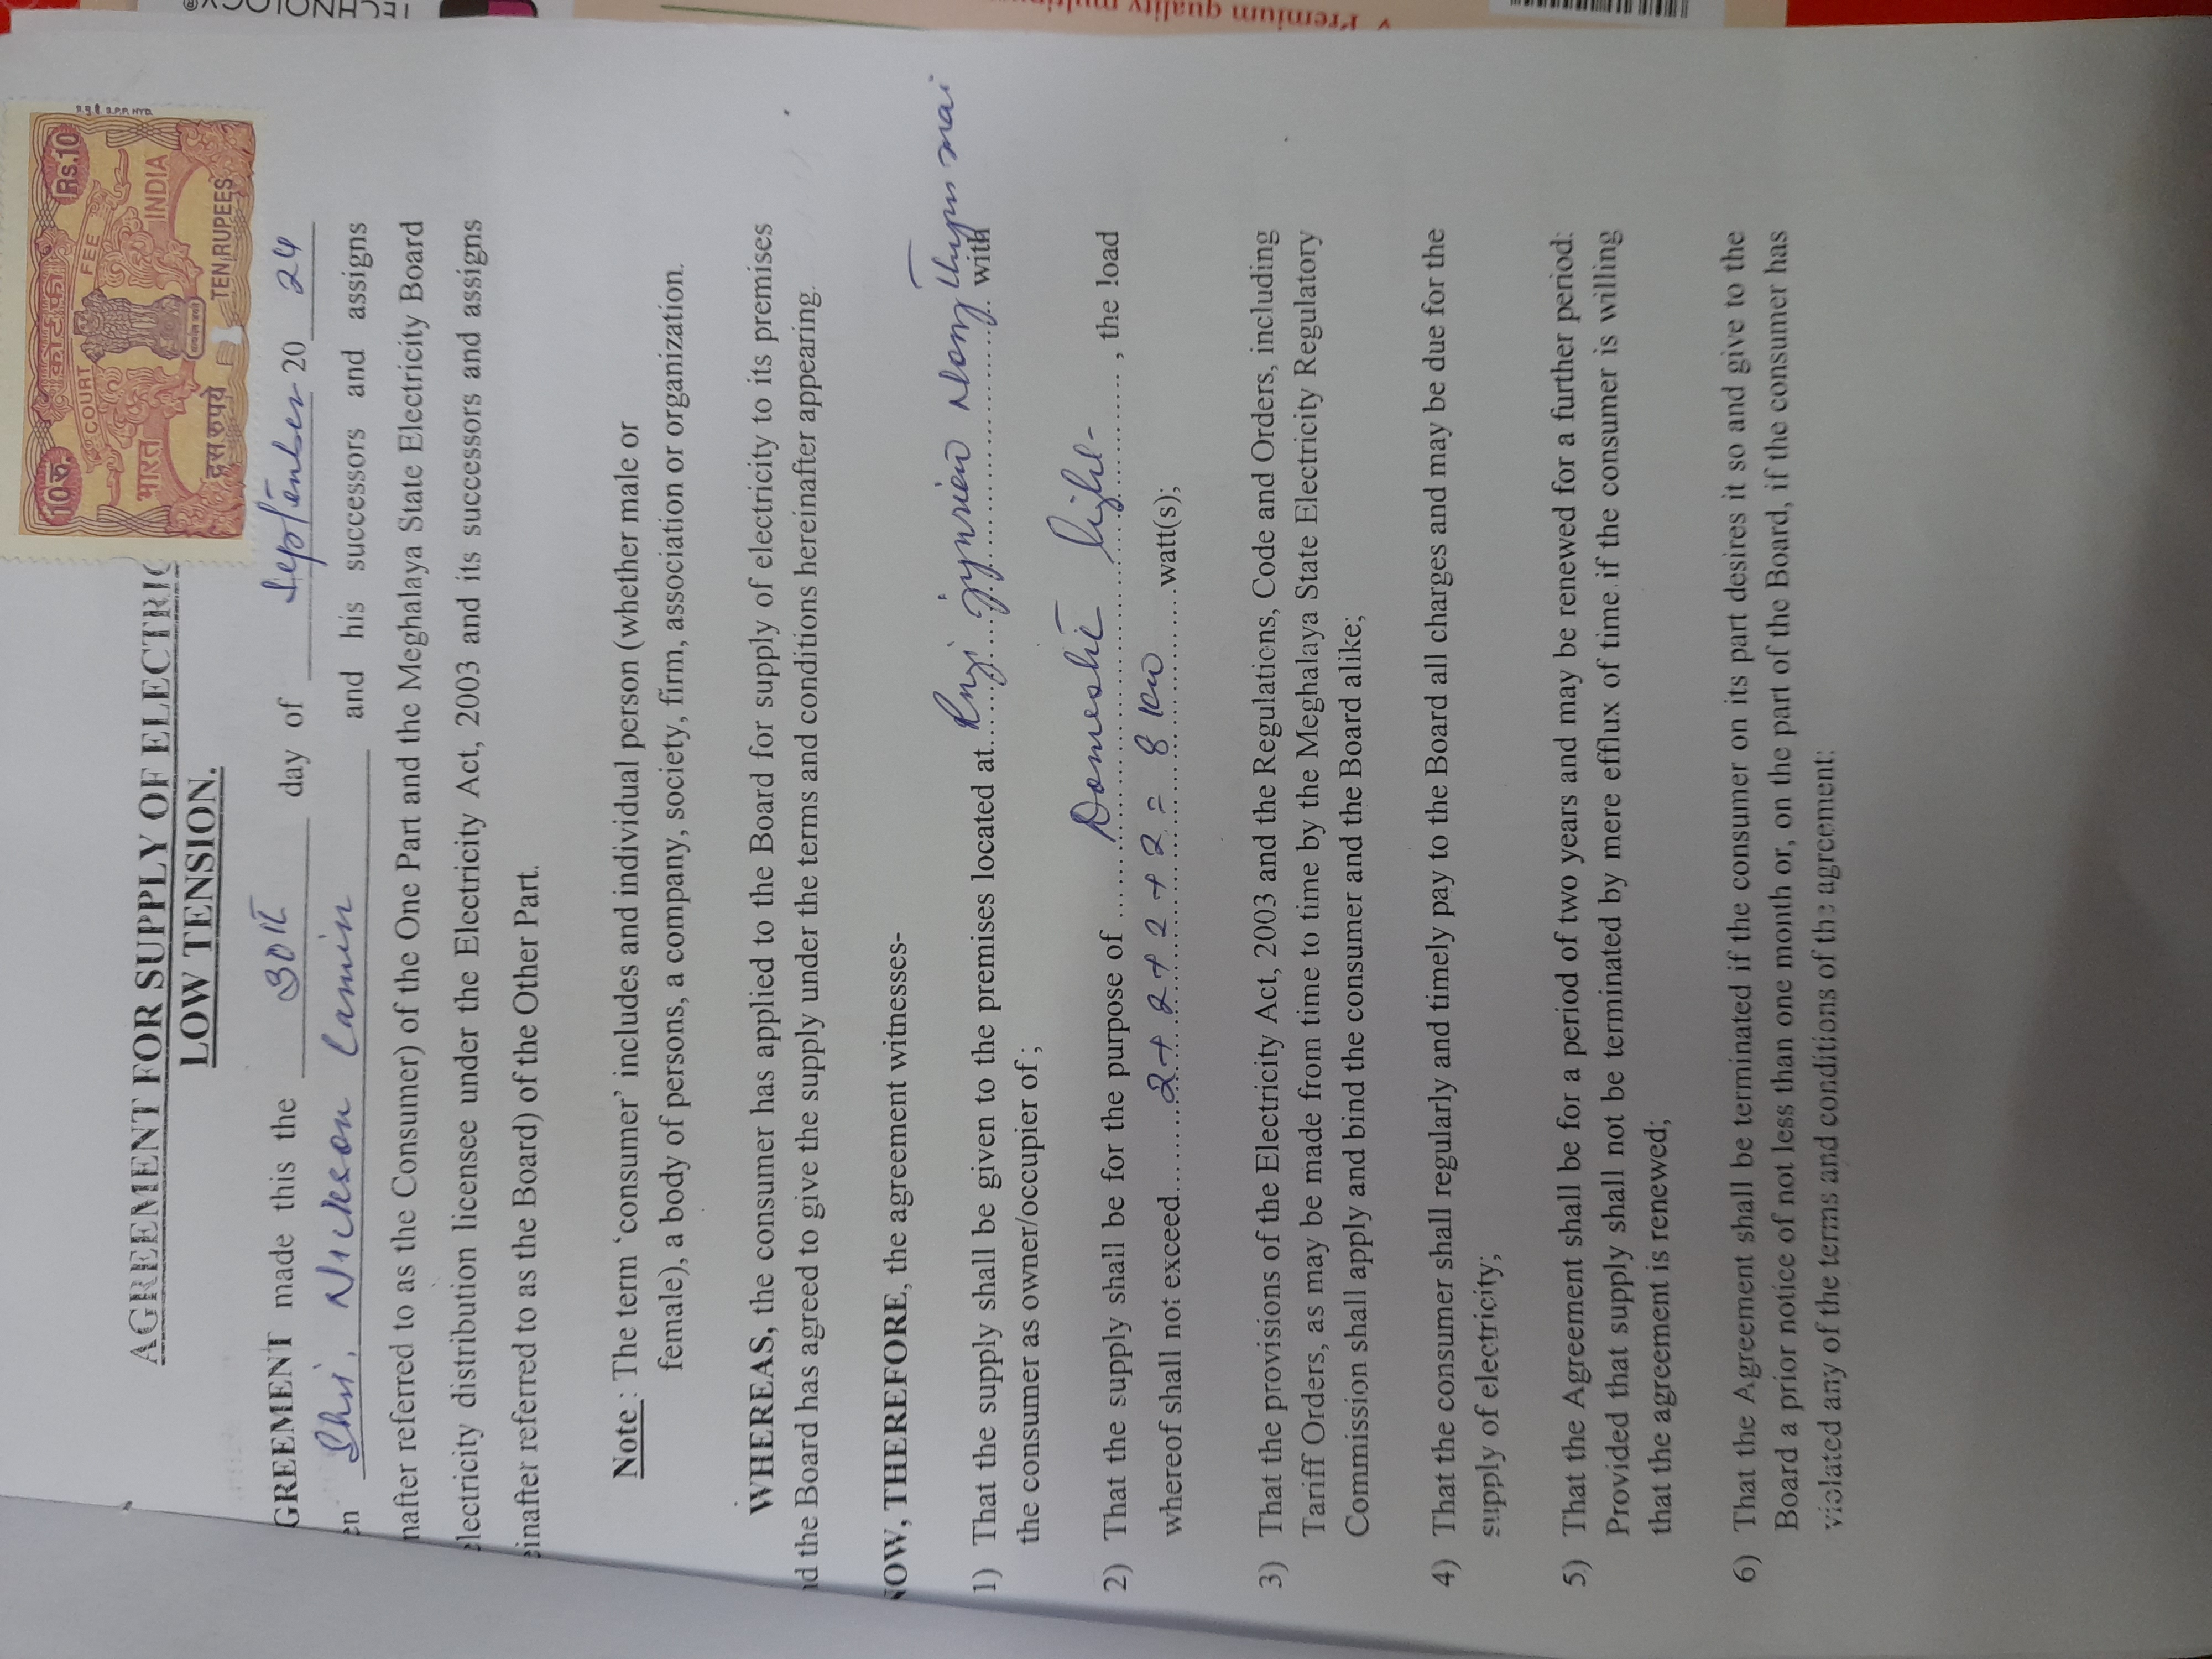 TECHNOLOGY®
Premium quality
10 रु. कोर्ट फीस Rs.10
COURT FEE
भारत INDIA
दस रुपये TEN RUPEES
AGREEMENT FOR SUPPLY OF ELECTRIC
LOW TENSION.
GREEMENT made this the 30th day of September 20 24
en Shri. Nickson Lamin and his successors and assigns
nafter referred to as the Consumer) of the One Part and the Meghalaya State Electricity Board
lectricity distribution licensee under the Electricity Act, 2003 and its successors and assigns
einafter referred to as the Board) of the Other Part.
Note : The term ‘consumer’ includes and individual person (whether male or
female), a body of persons, a company, society, firm, association or organization.
WHEREAS, the consumer has applied to the Board for supply of electricity to its premises
d the Board has agreed to give the supply under the terms and conditions hereinafter appearing.
OW, THEREFORE, the agreement witnesses-
1) That the supply shall be given to the premises located at Nongthymmai with
the consumer as owner/occupier of ;
2) That the supply shall be for the purpose of Domestic light , the load
whereof shall not exceed 2+2+2+2 = 8 kw watt(s);
3) That the provisions of the Electricity Act, 2003 and the Regulations, Code and Orders, including
Tariff Orders, as may be made from time to time by the Meghalaya State Electricity Regulatory
Commission shall apply and bind the consumer and the Board alike;
4) That the consumer shall regularly and timely pay to the Board all charges and may be due for the
supply of electricity;
5) That the Agreement shall be for a period of two years and may be renewed for a further period:
Provided that supply shall not be terminated by mere efflux of time if the consumer is willing
that the agreement is renewed;
6) That the Agreement shall be terminated if the consumer on its part desires it so and give to the
Board a prior notice of not less than one month or, on the part of the Board, if the consumer has
violated any of the terms and conditions of the agreement;